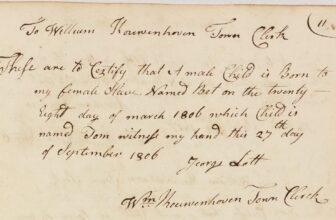 11
To William Kouwenhoven Town Clerk
These are to Certify that A male Child is Born to
my female Slave Named Bet on the twenty –
Eight day of march 1806 which Child is
named Tom witness my hand this 27th day
of September 1806
Jeorge Lott
Wm Kouwenhoven Town Clerck